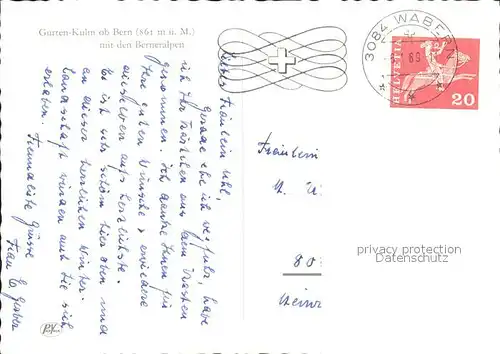 Gurten-Kulm ob Bern (861 m ü. M.)
mit den Berneralpen
3084 WABERN
69
HELVETIA
20
Liebes Fräulein Uhl,
Gerade ehe ich verfuhr, habe
ich Ihr Kärtchen aus dem Kasten
genommen. Ich danke Ihnen für
Ihre guten Wünsche & erwidere
dieselben aufs herzlichste.
Es ist sehr schön hier oben und
an dieser herrlichen Winter-
landschaft würden auch Sie sich
erlaben. Freundliche Grüsse
Frau E
Fräulein
80
privacy protection
Datenschutz